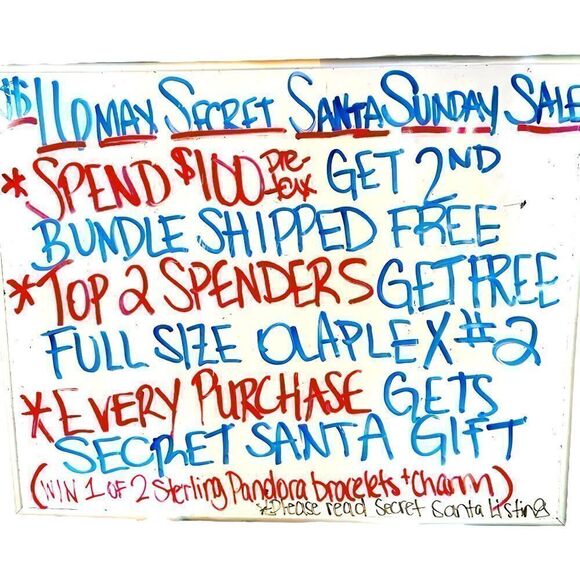 $110 MAX SECRET SANTA SUNDAY SALE
*SPEND $100 pre-tax GET 2ND
BUNDLE SHIPPED FREE
*TOP 2 SPENDERS GET FREE
FULL SIZE OLAPLEX #2
*EVERY PURCHASE GETS
SECRET SANTA GIFT
(WIN 1 OF 2 Sterling Pandora bracelets + charm)
*Please read Secret Santa listing